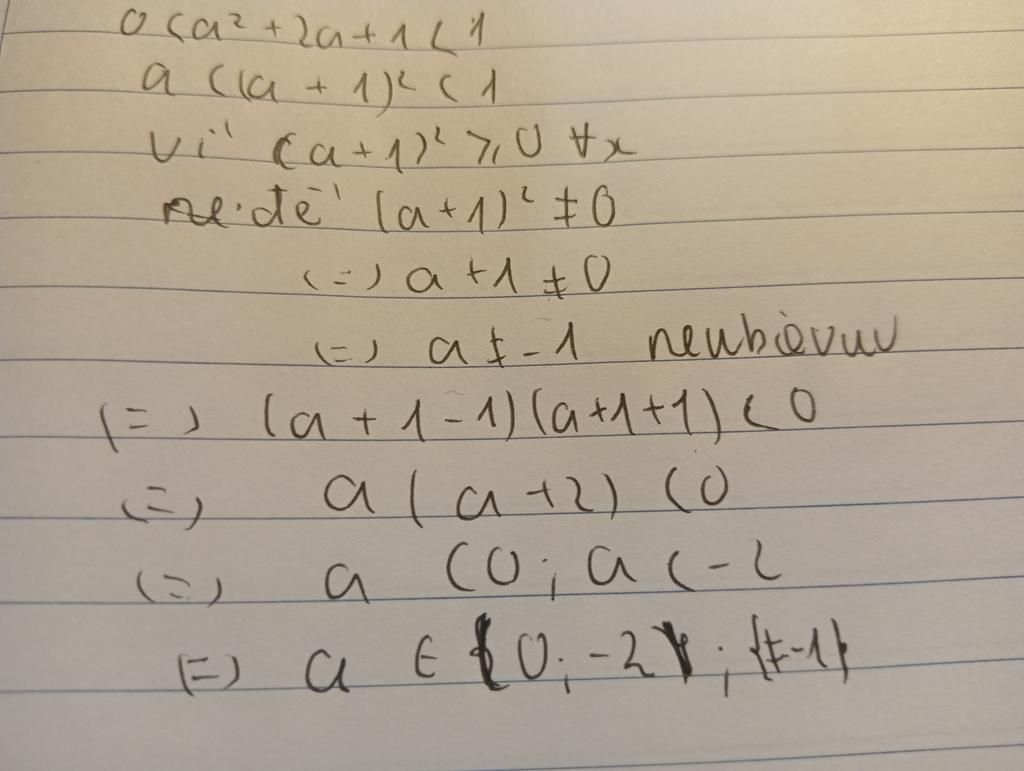 0 < a² + 2a + 1 < 1
a < (a + 1)² < 1
Vì (a + 1)² ≥ 0 ∀x
để (a + 1)² ≠ 0
(=) a + 1 ≠ 0
(=) a ≠ -1
(=) (a + 1 - 1)(a + 1 + 1) < 0
(=) a(a + 2) < 0
(=) a < 0 ; a < -2
(=) a ∈ {0; -2} ; {≠ -1}